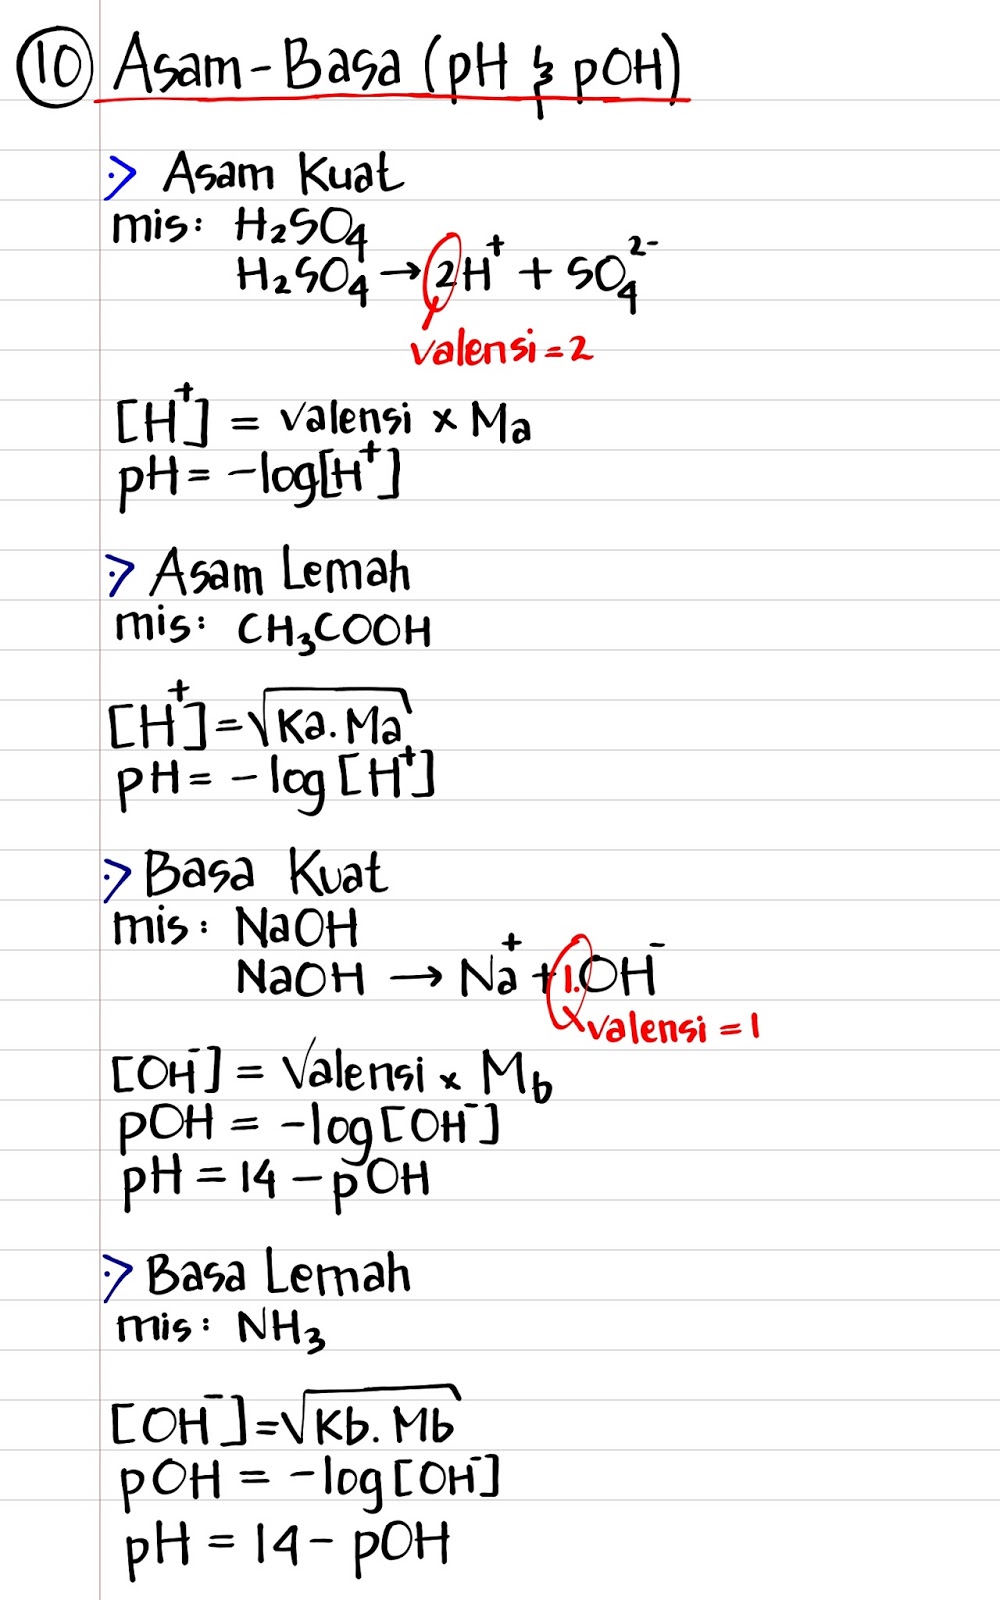 10 Asam-Basa (pH & pOH)
Asam Kuat
mis: H₂SO₄
H₂SO₄ → 2H⁺ + SO₄²⁻
valensi = 2
[H⁺] = valensi × Ma
pH = -log[H⁺]
Asam Lemah
mis: CH₃COOH
[H⁺] = √Ka.Ma
pH = -log [H⁺]
Basa Kuat
mis: NaOH
NaOH → Na⁺ + 1.OH⁻
valensi = 1
[OH⁻] = Valensi × Mb
pOH = -log[OH⁻]
pH = 14 - pOH
Basa Lemah
mis: NH₃
[OH⁻] = √Kb.Mb
pOH = -log[OH⁻]
pH = 14 - pOH